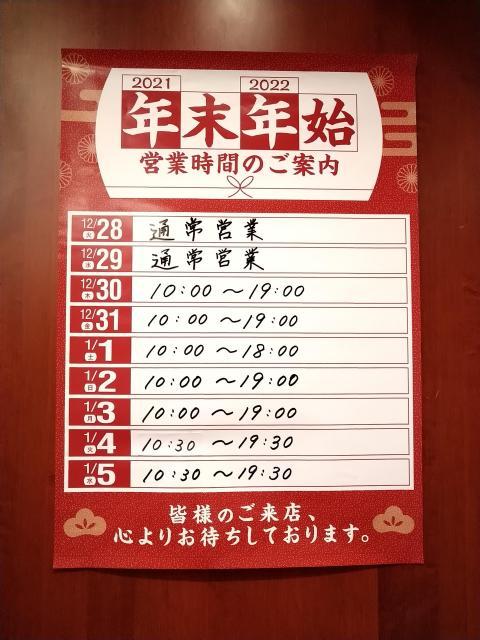 2021 2022
年末年始
営業時間のご案内
12/28 火 通常営業
12/29 水 通常営業
12/30 木 10:00 〜 19:00
12/31 金 10:00 〜 19:00
1/1 土 10:00 〜 18:00
1/2 日 10:00 〜 19:00
1/3 月 10:00 〜 19:00
1/4 火 10:30 〜 19:30
1/5 水 10:30 〜 19:30
皆様のご来店、
心よりお待ちしております。